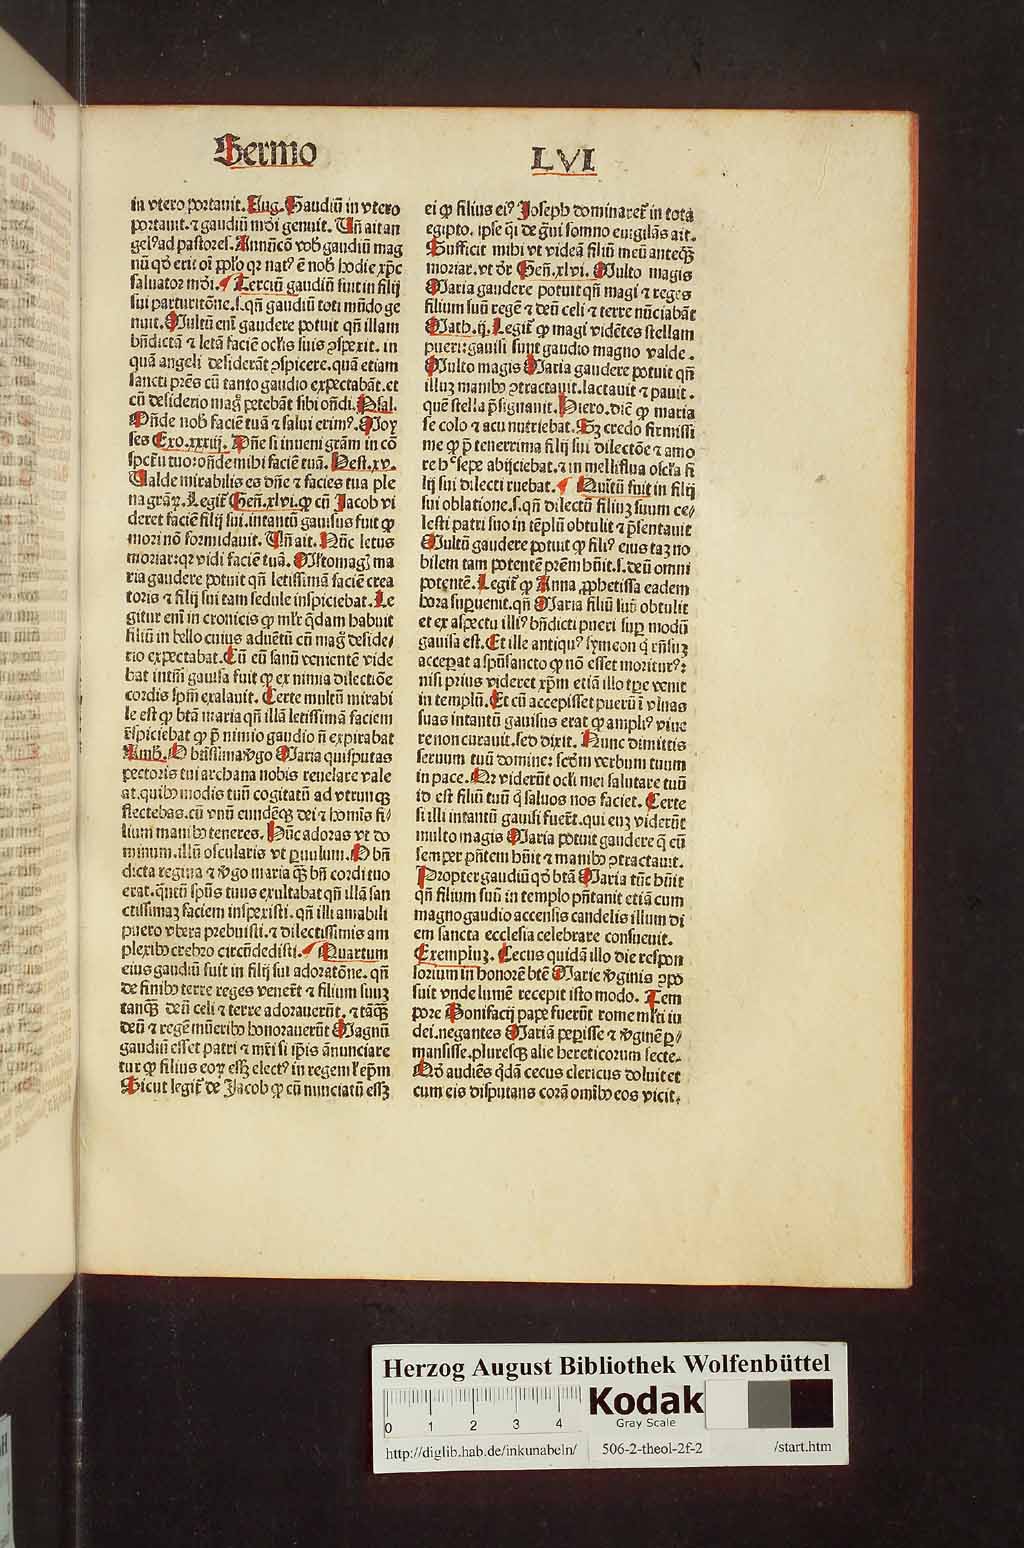 Sermo
LVI
in vtero portauit. Aug. Gaudiū in vtero
portauit. ⁊ gaudiū mōi genuit. Vn̄ ait an
gelꝰ ad pastores. Annūcō vob̄ gaudiū mag
nū qḋ erit oī ꝓplo qꝛ natꝰ ē nob̄ hodie xp̄c
saluator mōi. ¶ Terciū gaudiū fuit in filij
sui parturitōne. s. qn̄ gaudiū toti mūdo ge
nuit. Multū enī gaudere potuit qn̄ illam
bn̄dictā ⁊ letā faciē oc̄lis suis ꝯspexit. in
quā angeli desiderāt ꝯspicere. quā etiam
sancti pr̄es cū tanto gaudio expectabāt. et
cū desiderio maḡ petebāt sibi on̄di. Psal.
On̄de nob̄ faciē tuā ⁊ salui erimꝰ. Moy
ses Exo. xxxiij. Dn̄e si inueni grām in cō
spc̄tu tuo: on̄de mihi faciē tuā. Hest. xv.
Valde mirabilis es dn̄e ⁊ facies tua ple
na grāꝝ. Legit᷑ Gen̄. xlvi. ꝙ cū Jacob vi
deret faciē filij sui. intantū gauisus fuit ꝙ
mori nō formidauit. Vn̄ ait. Nūc letus
moriar: qꝛ vidi faciē tuā. Mltomagꝭ ma
ria gaudere potuit qn̄ letissimā faciē crea
toris ⁊ filij sui tam sedule inspiciebat. Le
gitur enī in cronicis ꝙ mr̄ q̄dam habuit
filiū in bello cuius aduētū cū maḡ deside/
rio expectabat. Cū eū sanū venientē vide
bat intm̄ gauisa fuit ꝙ ex nimia dilectiōe
cordis spm̄ exalauit. Certe multū mirabi
le est ꝙ btā maria qn̄ illā letissimā faciem
r̄spiciebat ꝙ p̄ nimio gaudio n̄ expirabat
Amb. O btīssima v̄go Maria quis putas
pectoris tui archana nobis reuelare vale
at. quibꝰ modis tuū cogitatū ad vtrunqꝫ
flectebas. cū vnū eundēqꝫ dei ⁊ homīs fi/
lium manibꝰ teneres. Nūc adoras vt do
minum. illū oscularis vt ꝑuulum. O bn̄
dicta regina ⁊ v̄go maria qꝫ bn̄ cordi tuo
erat. q̄ntū spūs tuus exultabat qn̄ illā san
ctissimaꝫ faciem inspexisti. qn̄ illi amabili
puero vbera prebuisti. ⁊ dilectissimis am
plexibꝰ crebro circūdedisti. ¶ Quartum
eius gaudiū fuit in filij sui adoratōne. qn̄
de finibꝰ terre reges vener̄t ⁊ filium suuꝫ
tanqꝫ deū celi ⁊ terre adorauerūt. ⁊ tāqꝫ
deū ⁊ regē mūeribꝰ honorauerūt Magnū
gaudiū esset patri ⁊ mr̄i si ip̄is ānunciare
tur ꝙ filius eoꝝ esꝫ electꝰ in regem l̓ ep̄m
Sicut legit᷑ de Jacob ꝙ cū nunciatū esꝫ
ei ꝙ filius eiꝰ Joseph dominaret᷑ in tota
egipto. ipse q̄i de g̓ui somno euigilās ait.
Sufficit mihi vt videā filiū meū anteqꝫ
moriar. vt dr̄ Gen̄. xlvi. Multo magis
Maria gaudere potuit qn̄ magi ⁊ reges
filium suū regē ⁊ deū celi ⁊ terre nūciabāt
Math. ij. Legit᷑ ꝙ magi vidētes stellam
pueri: gauisi sunt gaudio magno valde.
Multo magis Maria gaudere potuit qn̄
illuꝫ manibꝰ ꝯtractauit. lactauit ⁊ pauit.
quē stella p̄signauit. Hiero. dic̄ ꝙ maria
se colo ⁊ acu nutriebat. Sꝫ credo firmissi
me ꝙ p̄ tenerrima filij sui dilectōe ⁊ amo
re hᵉ sepe abijciebat. ⁊ in melliflua oscl̓a fi
lij sui dilecti ruebat. ¶ Quītū fuit in filij
sui oblatione. s. qn̄ dilectū filiuꝫ suum ce/
lesti patri suo in tēplū obtulit ⁊ p̄sentauit
Multū gaudere potuit ꝙ filiꝰ eius taꝫ no
bilem tam potentē prēm hūit. s. deū omni
potentē. Legit᷑ ꝙ Anna ꝓphetissa eadem
hora suꝑuenit. qn̄ Maria filiū suū obtulit
et ex aspectu illiꝰ bn̄dicti pueri suꝑ modū
gauisa est. Et ille antiquꝰ symeon q̄ rn̄suꝫ
acceꝑat a spūsancto ꝙ nō esset moriturꝰ:
nisi prius videret xp̄m etiā illo tꝑe venit
in templū. Et cū accepisset puerū ī vlnas
suas intantū gauisus erat ꝙ ampliꝰ viue
re non curauit. sed dixit. Nunc dimittis
seruum tuū domine: scd̄m verbum tuum
in pace. Qꝛ viderūt oc̄li mei salutare tuū
id est filiū tuū q̄ saluos nos faciet. Certe
si illi intantū gauisi fuer̄t. qui euꝫ viderūt
multo magis Maria potuit gaudere q̄ cū
semper pn̄tem hūit ⁊ manibꝰ ꝯtractauit.
Propter gaudiū qḋ btā Maria tūc hūit
qn̄ filium suū in templo pn̄tanit etiā cum
magno gaudio accensis candelis illum di
em sancta ecclesia celebrare consueuit.
Exempluꝫ. Cecus quidā illo die respon
sorium in honorē btē Marie v̄ginis ꝯpo
suit vnde lumē recepit isto modo. Tem
pore Bonifacij pape fuerūt rome ml̓ti iu
dei. negantes Mariā peperisse ⁊ v̄ginē ꝑ/
mansisse. pluresqꝫ alie hereticorum secte.
Qḋ audiēs q̄dā cecus clericus doluit et
cum eis disputans corā omībꝰ eos vicit.
Herzog August Bibliothek Wolfenbüttel
0 1 2 3 4
Kodak
Gray Scale
http://diglib.hab.de/inkunabeln/ 506-2-theol-2f-2 /start.htm